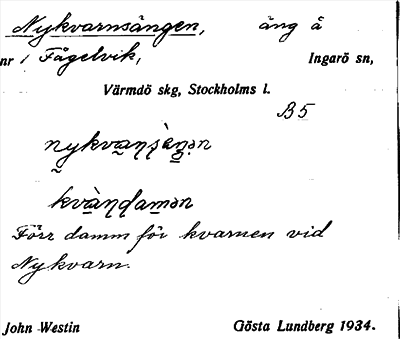 Nykvarnsängen, äng å
nr 1 Fågelvik, Ingarö sn,
Värmdö skg, Stockholms l.
B5
kvàṇḍamən
Förr damm för kvarnen vid
Nykvarn.
John Westin Gösta Lundberg 1934.